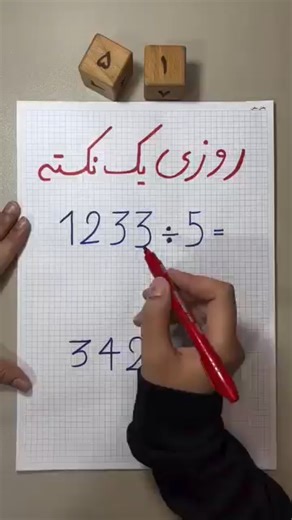 ۵ ۱
روزی یک نکته
1233÷5=
342